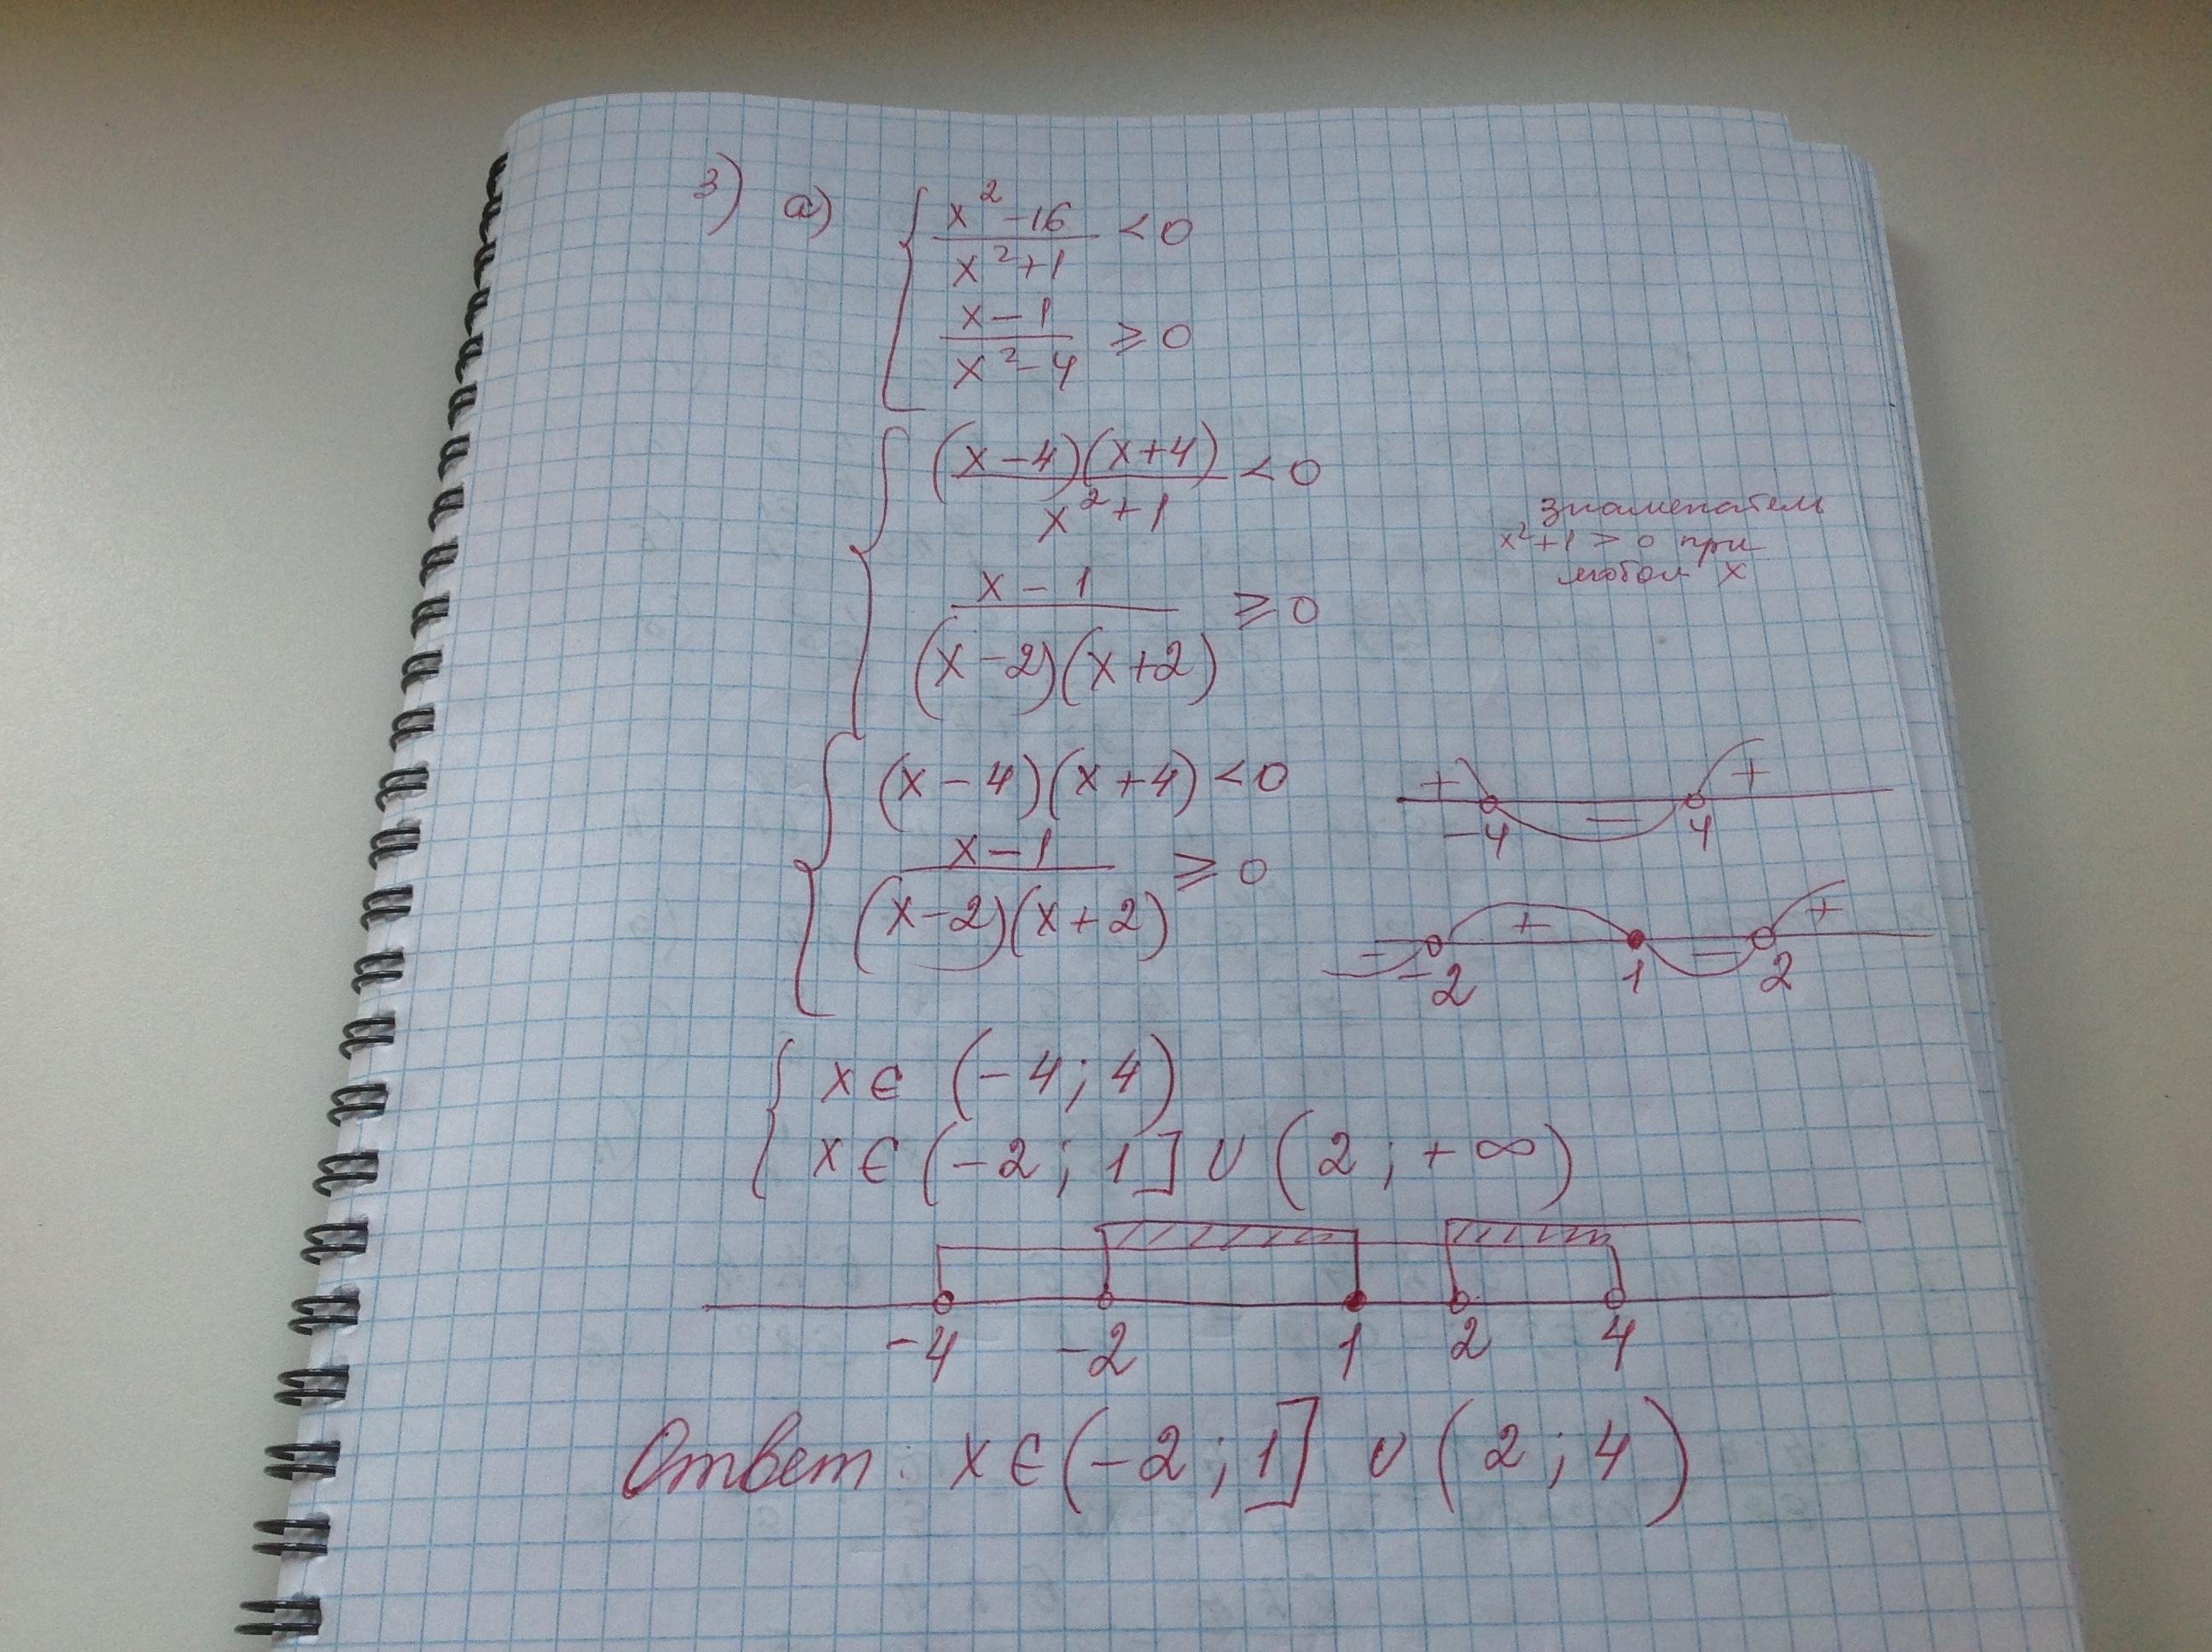 3) а) { x²-16 / x²+1 < 0
x-1 / x²-4 ⩾ 0
{ (x-4)(x+4) / x²+1 < 0
знаменатель
x²+1 > 0 при
любом x
x-1 / (x-2)(x+2) ⩾ 0
{ (x-4)(x+4) < 0
+ - +
-4 4
x-1 / (x-2)(x+2) ⩾ 0
- + - +
-2 1 2
{ x ∈ (-4; 4)
x ∈ (-2; 1] ∪ (2; +∞)
-4 -2 1 2 4
Ответ: x ∈ (-2; 1] ∪ (2; 4)